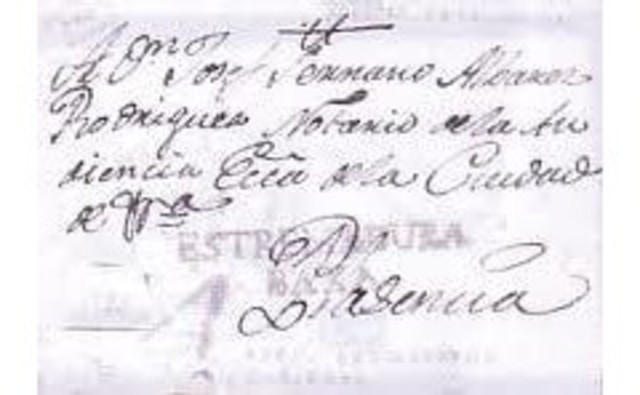 A Dn Josef Fernano Albarez
Rodriguez Notario de la Au
diencia Ecca de la Ciudad
de
ESTREMADURA
BAXA